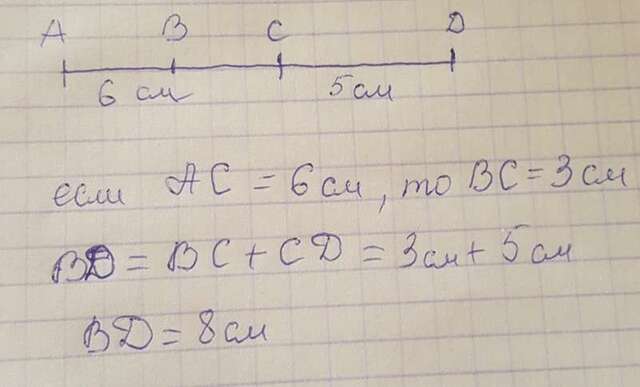 A B C D
6 см 5 см
если AC = 6 см, то BC = 3 см
BD = BC + CD = 3 см + 5 см
BD = 8 см